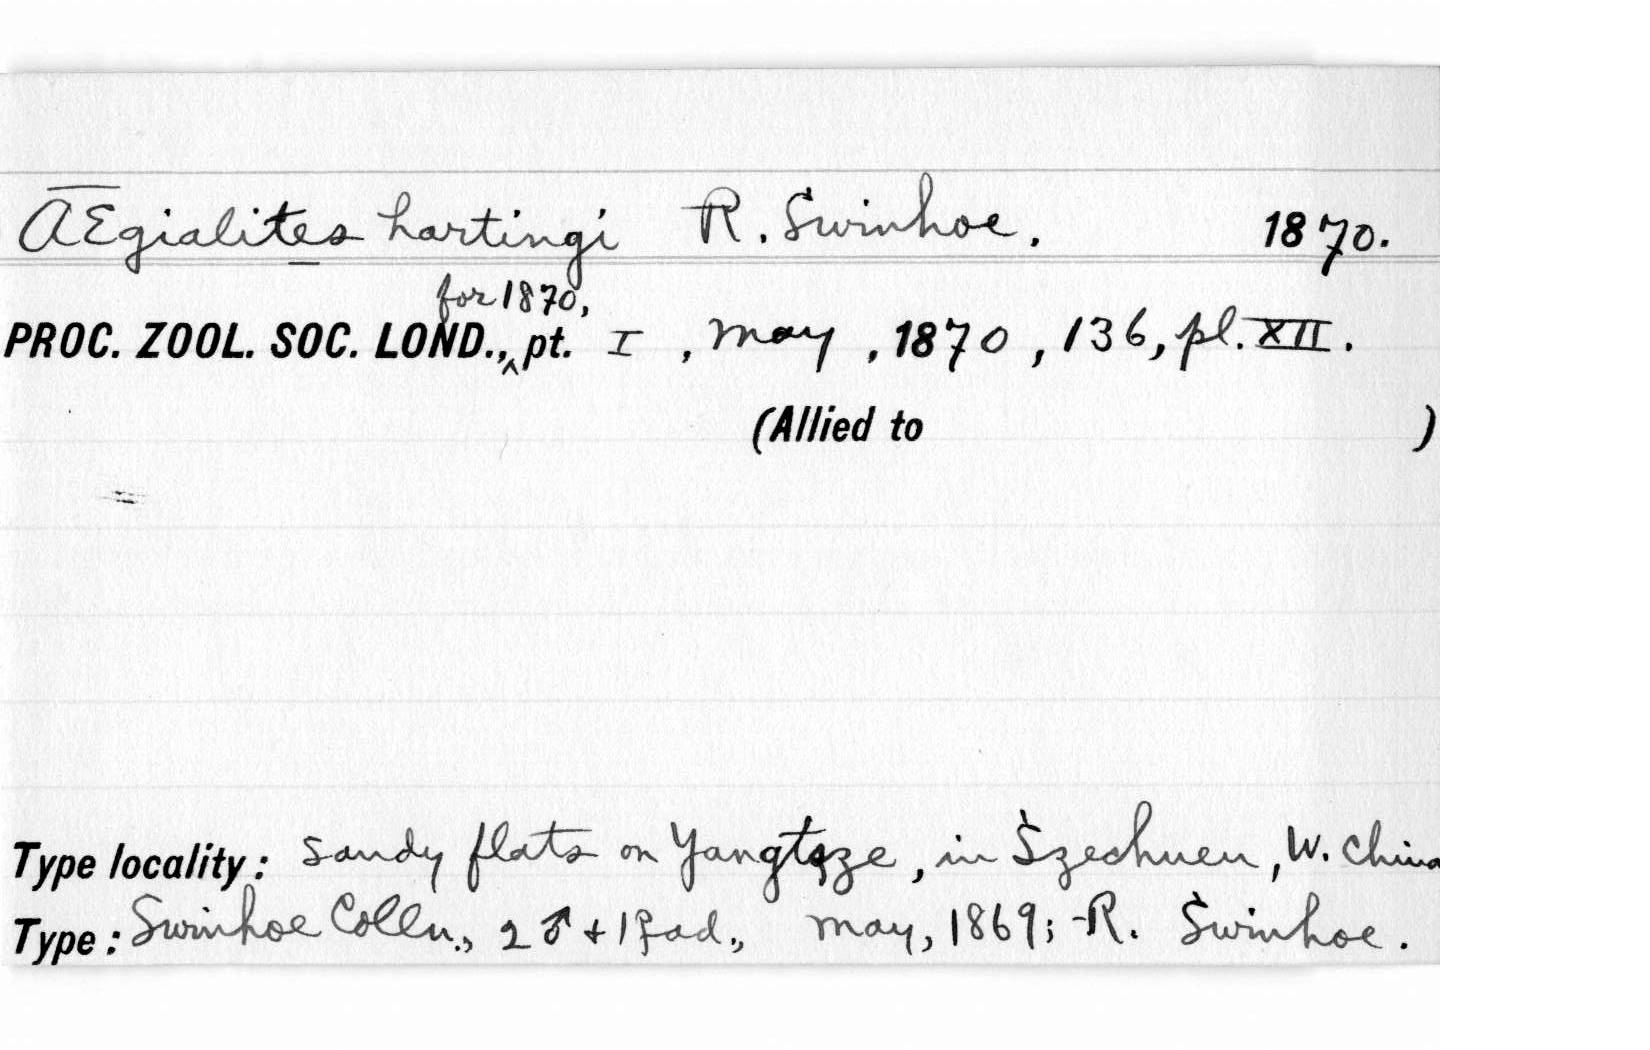 Ægialites hartingi R. Swinhoe. 1870.
for 1870,
PROC. ZOOL. SOC. LOND., ^ pt. I, May, 1870, 136, pl. XII.
(Allied to )
Type locality: Sandy flats on Yangtsze, in Szechuen, W. China
Type: Swinhoe Colln., 2 ♂ + 1 ♀ ad., May, 1869; R. Swinhoe.